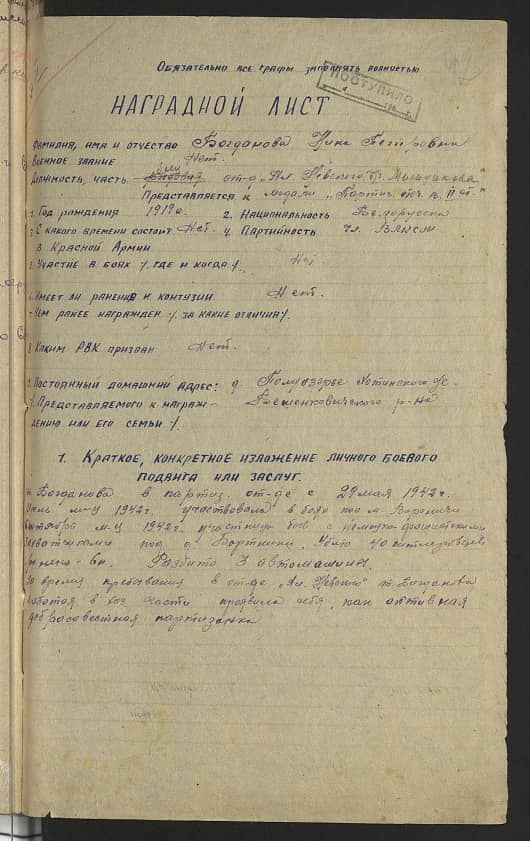 Обязательно все графы заполнять полностью
ПОСТУПИЛО
НАГРАДНОЙ ЛИСТ
Фамилия, имя и отчество Богданова Нина Петровна
Военное звание Нет.
Должность, часть отр-д
Представляется к медали „Партиз. отеч. в. II ст."
1. Год рождения 1919г. 2. Национальность Белорусска
3. С какого времени состоит Нет. 4. Партийность чл. ВЛКСМ
в Красной Армии
5. Участие в боях /. где и когда /. Нет
Имеет ли ранения и контузии Нет.
Чем ранее награжден /. за какие отличия /.
Каким РВК призван Нет.
Постоянный домашний адрес: д. Полуозерье с/с.
/. Представляемого к награж- Бешенковичского р-на
дению или его семьи /.
1. Краткое, конкретное изложение личного боевого
подвига или заслуг.
т. Богданова в партиз. отр-де с 29 мая 1942г.
м-ц 1942г. участвовала в бою под м.
м-ц 1942г. участница боев с немецко-фашистскими
захватчиками под д. Убито 40 гитлеровцев
Разбито 3 автомашины.
За время пребывания в отр-де т. Богданова
работая в хоз. части проявила себя, как активная
добросовестная партизанка